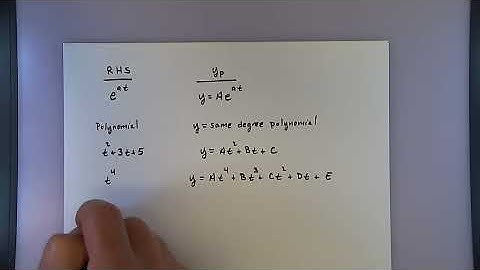 RHS yp
e^at y = Ae^at
Polynomial y = same degree polynomial
t^2 + 3t + 5 y = At^2 + Bt + C
t^4 y = At^4 + Bt^3 + Ct^2 + Dt + E